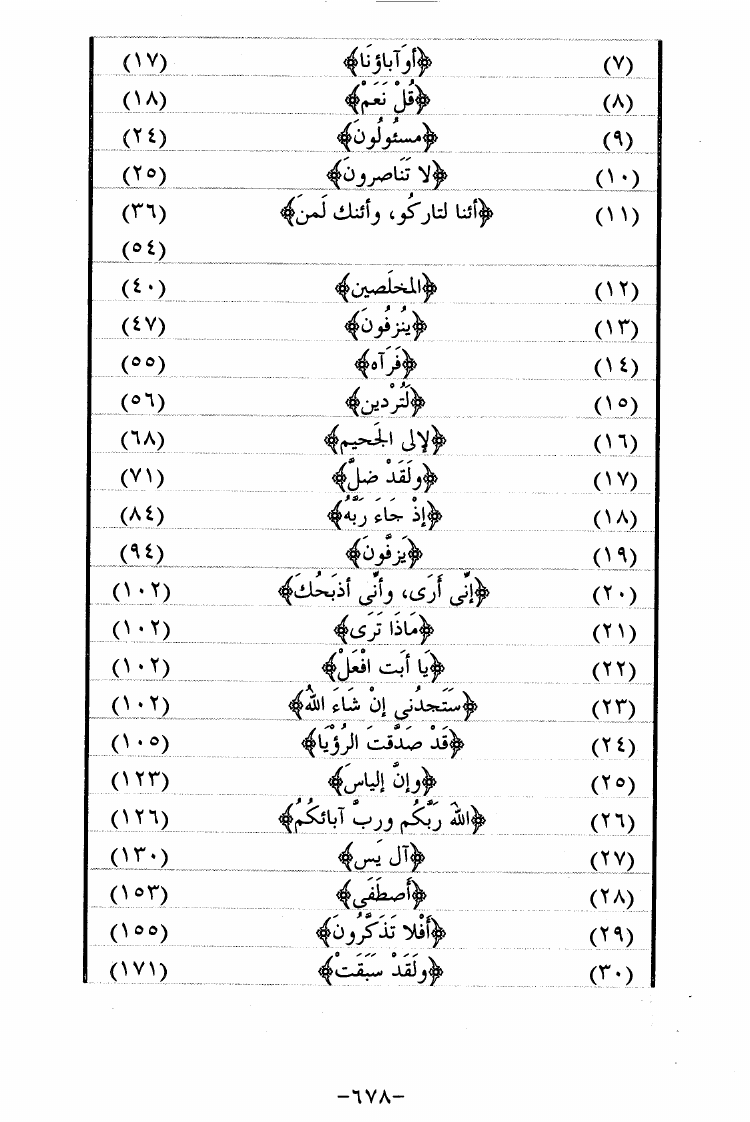 (٧) ﴿أوَآباؤنَا﴾ (١٧)
(٨) ﴿قُلْ نَعَمْ﴾ (١٨)
(٩) ﴿مسئُولُونَ﴾ (٢٤)
(١٠) ﴿لا تَنَاصرونَ﴾ (٢٥)
(١١) ﴿أئنا لتاركُو، وأئنك لَمنَ﴾ (٣٦)
(٥٤)
(١٢) ﴿المخلَصين﴾ (٤٠)
(١٣) ﴿يُنزفُونَ﴾ (٤٧)
(١٤) ﴿فَرَآه﴾ (٥٥)
(١٥) ﴿لَتُرْدين﴾ (٥٦)
(١٦) ﴿لإلى الجَحيم﴾ (٦٨)
(١٧) ﴿ولَقَدْ ضلَّ﴾ (٧١)
(١٨) ﴿إذْ جَاءَ رَبَّهُ﴾ (٨٤)
(١٩) ﴿يَزفُّونَ﴾ (٩٤)
(٢٠) ﴿إنِّي أَرَى، وأنِّي أذبَحُكَ﴾ (١٠٢)
(٢١) ﴿مَاذَا تَرَى﴾ (١٠٢)
(٢٢) ﴿يَا أبَت افْعَلْ﴾ (١٠٢)
(٢٣) ﴿سَتَجدُني إنْ شَاءَ اللهُ﴾ (١٠٢)
(٢٤) ﴿قَدْ صدَّقتَ الرُؤْيَا﴾ (١٠٥)
(٢٥) ﴿وإنَّ إلياسَ﴾ (١٢٣)
(٢٦) ﴿اللهَ رَبَّكُم وربَّ آبائكُمُ﴾ (١٢٦)
(٢٧) ﴿آل يَس﴾ (١٣٠)
(٢٨) ﴿أَصطَفَى﴾ (١٥٣)
(٢٩) ﴿أَفْلا تَذَكَّرُونَ﴾ (١٥٥)
(٣٠) ﴿ولَقَدْ سَبَقَتْ﴾ (١٧١)
-٦٧٨-